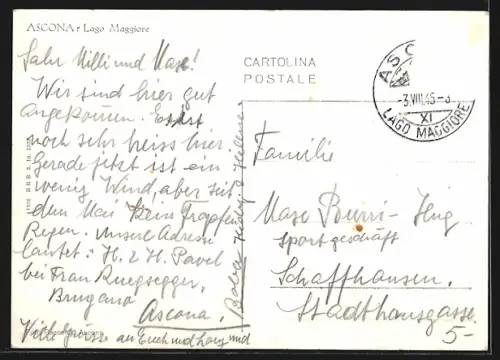 ASCONA - Lago Maggiore
CARTOLINA
POSTALE
ASC
-3.VIII.45-8
XI
LAGO MAGGIORE
Salu Willi und Mase!
Wir sind hier gut
angekommen. Es ist
noch sehr heiss hier.
Gerade jetzt ist ein
wenig Wind, aber seit
dem Mai kein Tropfen
Regen. Unsere Adresse
lautet: H. & H. Pavel
bei Frau Ruegsegger,
Brugano
Ascona.
Viele Grüsse an Euch und
Familie
Mase Burri-Hug
Sportgeschäft
Schaffhausen.
Stadthausgasse
5-